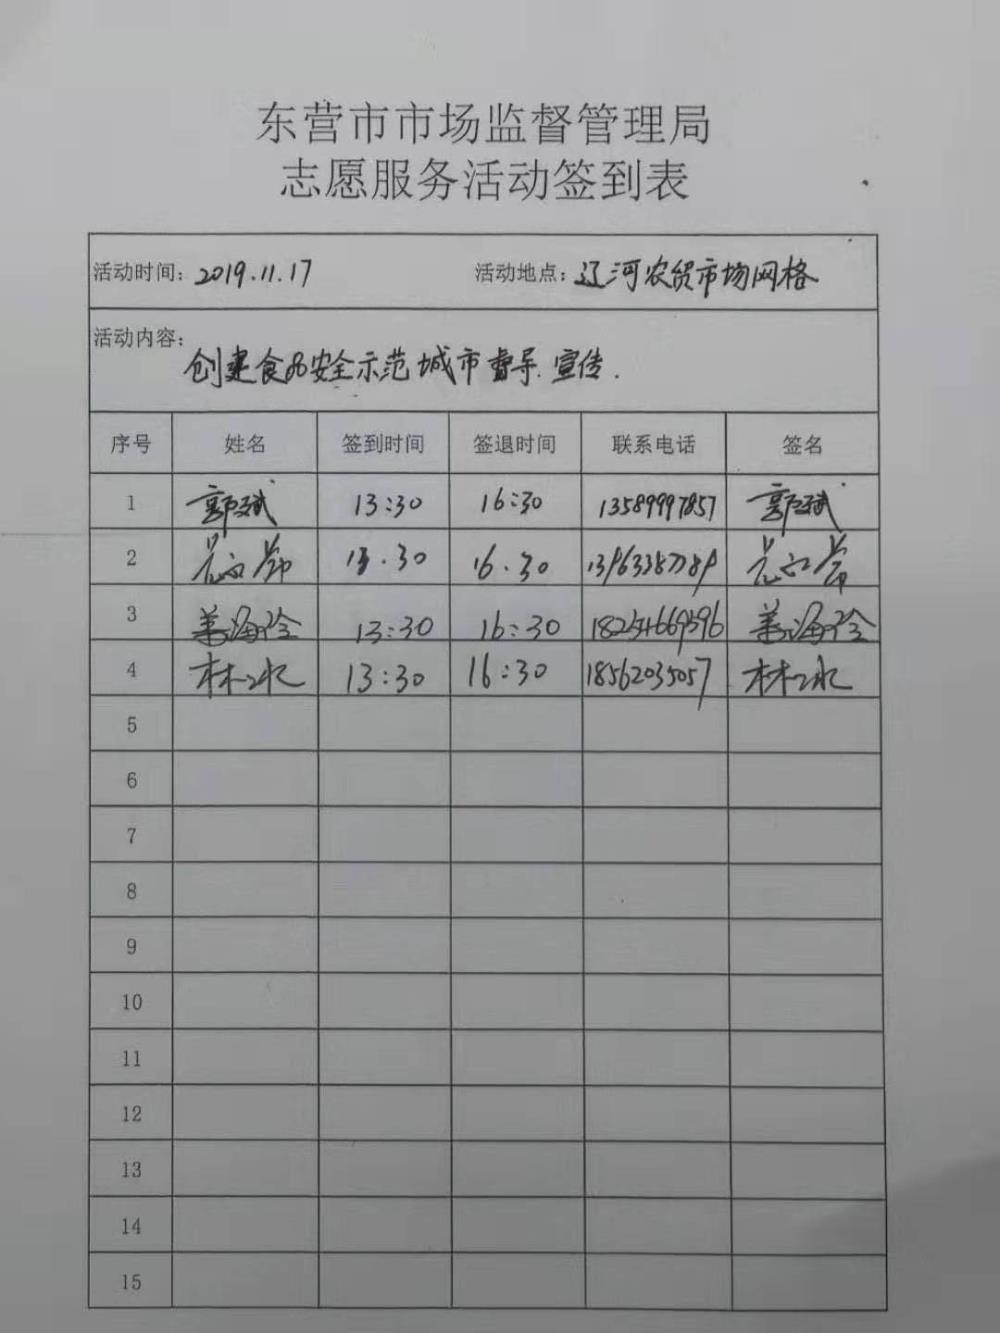 东营市市场监督管理局
志愿服务活动签到表
活动时间：2019.11.17 活动地点：辽河农贸市场网格
活动内容：
创建食品安全示范城市督导.宣传.
序号 姓名 签到时间 签退时间 联系电话 签名
1 郭斌 13:30 16:30 13589997857 郭斌
2 13.30 16.30
3 13:30 16:30
4 林冰 13:30 16:30 18562035057 林冰
5
6
7
8
9
10
11
12
13
14
15